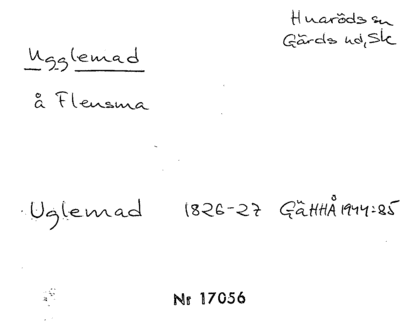 Huaröds sn
Gärds hd, Sk
Ugglemad
å Flensma
Uglemad 1826-27 GäHHÅ 1944:85
Nr 17056